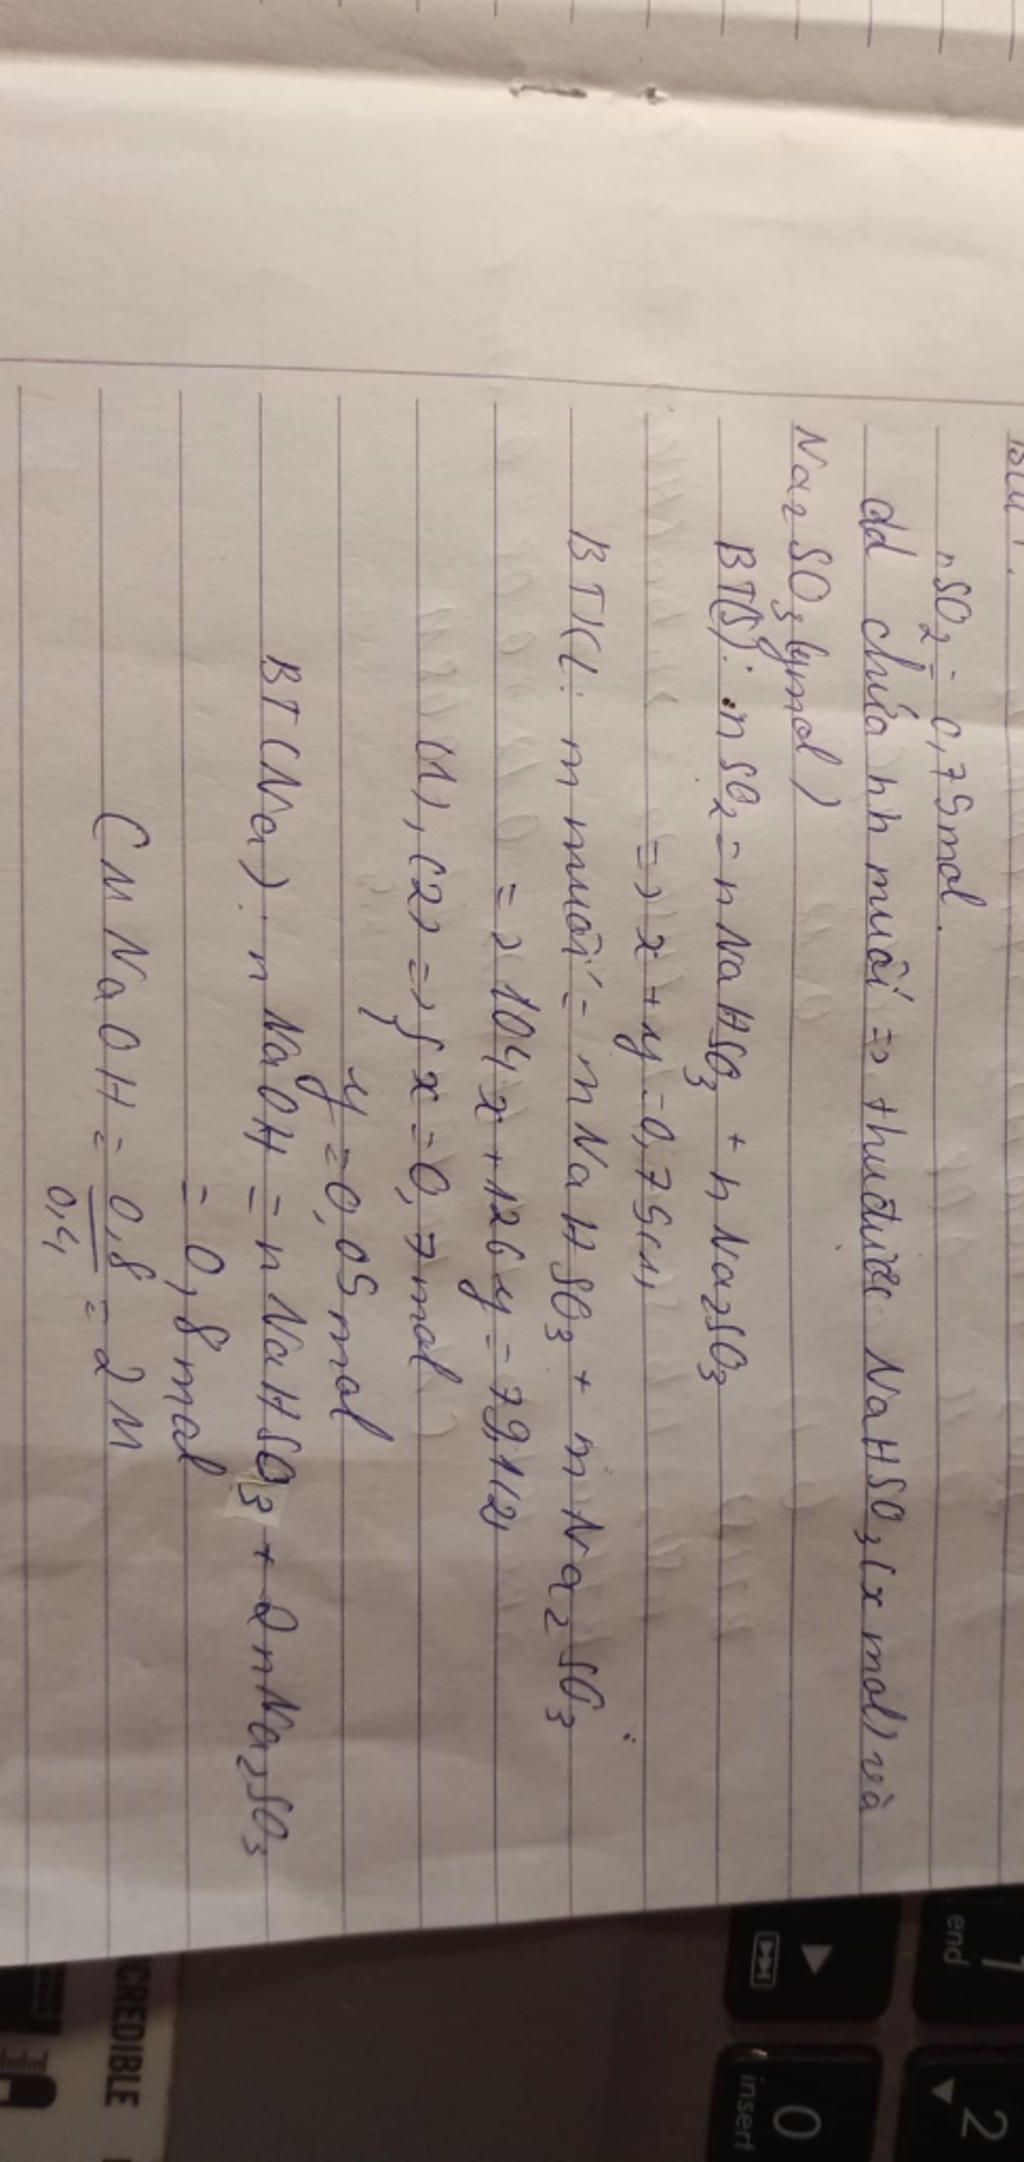 nSO2 = 0,75mol.
dd chứa hh muối => thuđược NaHSO3 (x mol) và
Na2SO3 (ymol)
BT(S): nSO2 = nNaHSO3 + nNa2SO3
=> x + y = 0,75(1)
BTKL: m muối = mNaHSO3 + mNa2SO3
=> 104x + 126y = 79,1(2)
(1), (2) => { x = 0,7mol
y = 0,05mol
BT(Na): nNaOH = nNaHSO3 + 2nNa2SO3
= 0,8mol
CM NaOH = 0,8/0,4 = 2M
1
end
2
0
insert
CREDIBLE